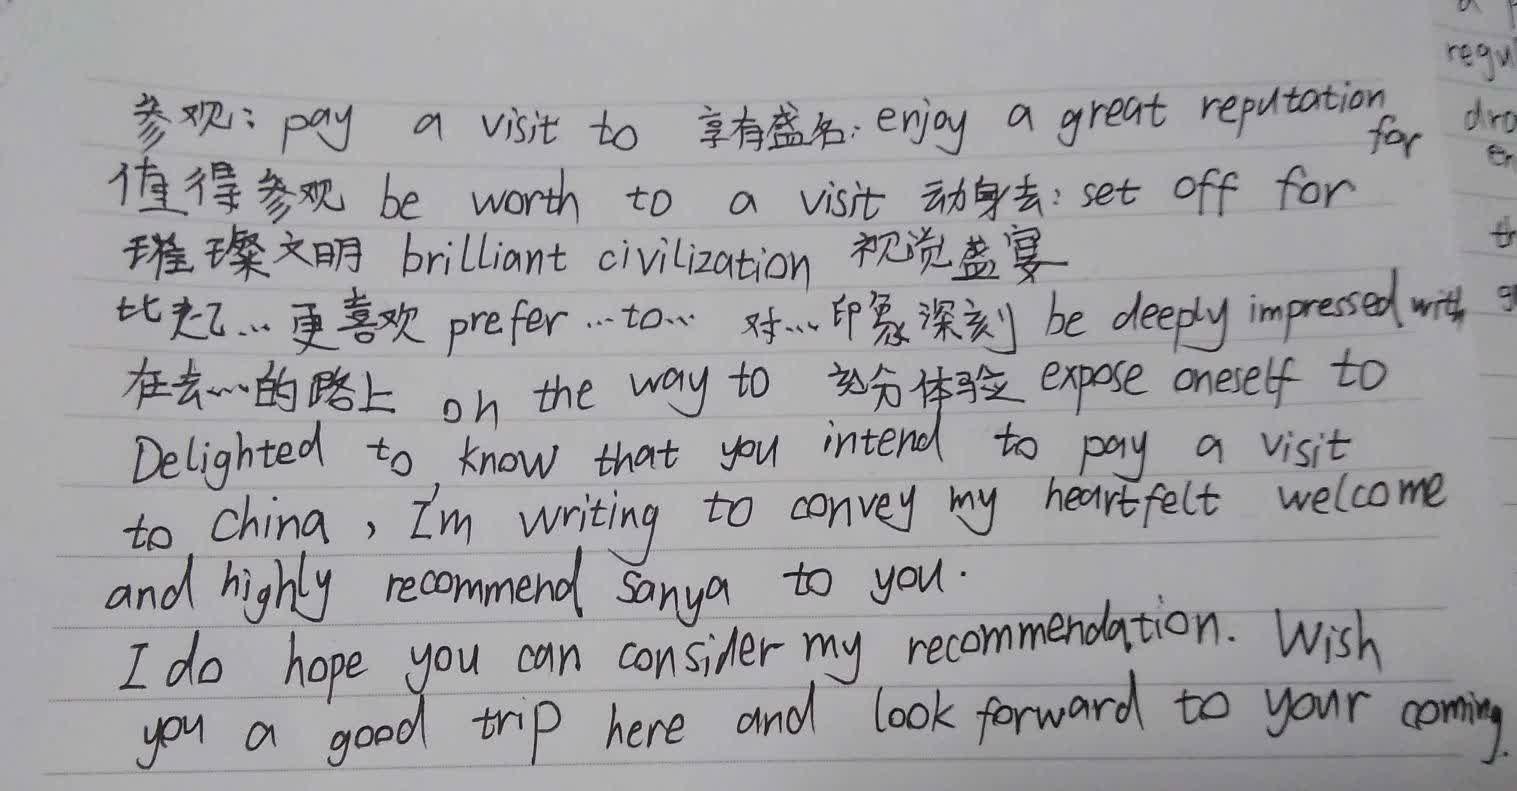 参观: pay a visit to 享有盛名: enjoy a great reputation
for
值得参观 be worth to a visit 动身去: set off for
璀璨文明 brilliant civilization 视觉盛宴
比起... 更喜欢 prefer ...to... 对... 印象深刻 be deeply impressed with
在去...的路上 on the way to 充分体验 expose oneself to
Delighted to know that you intend to pay a visit
to China, I'm writing to convey my heartfelt welcome
and highly recommend Sanya to you.
I do hope you can consider my recommendation. Wish
you a good trip here and look forward to your coming.
regu